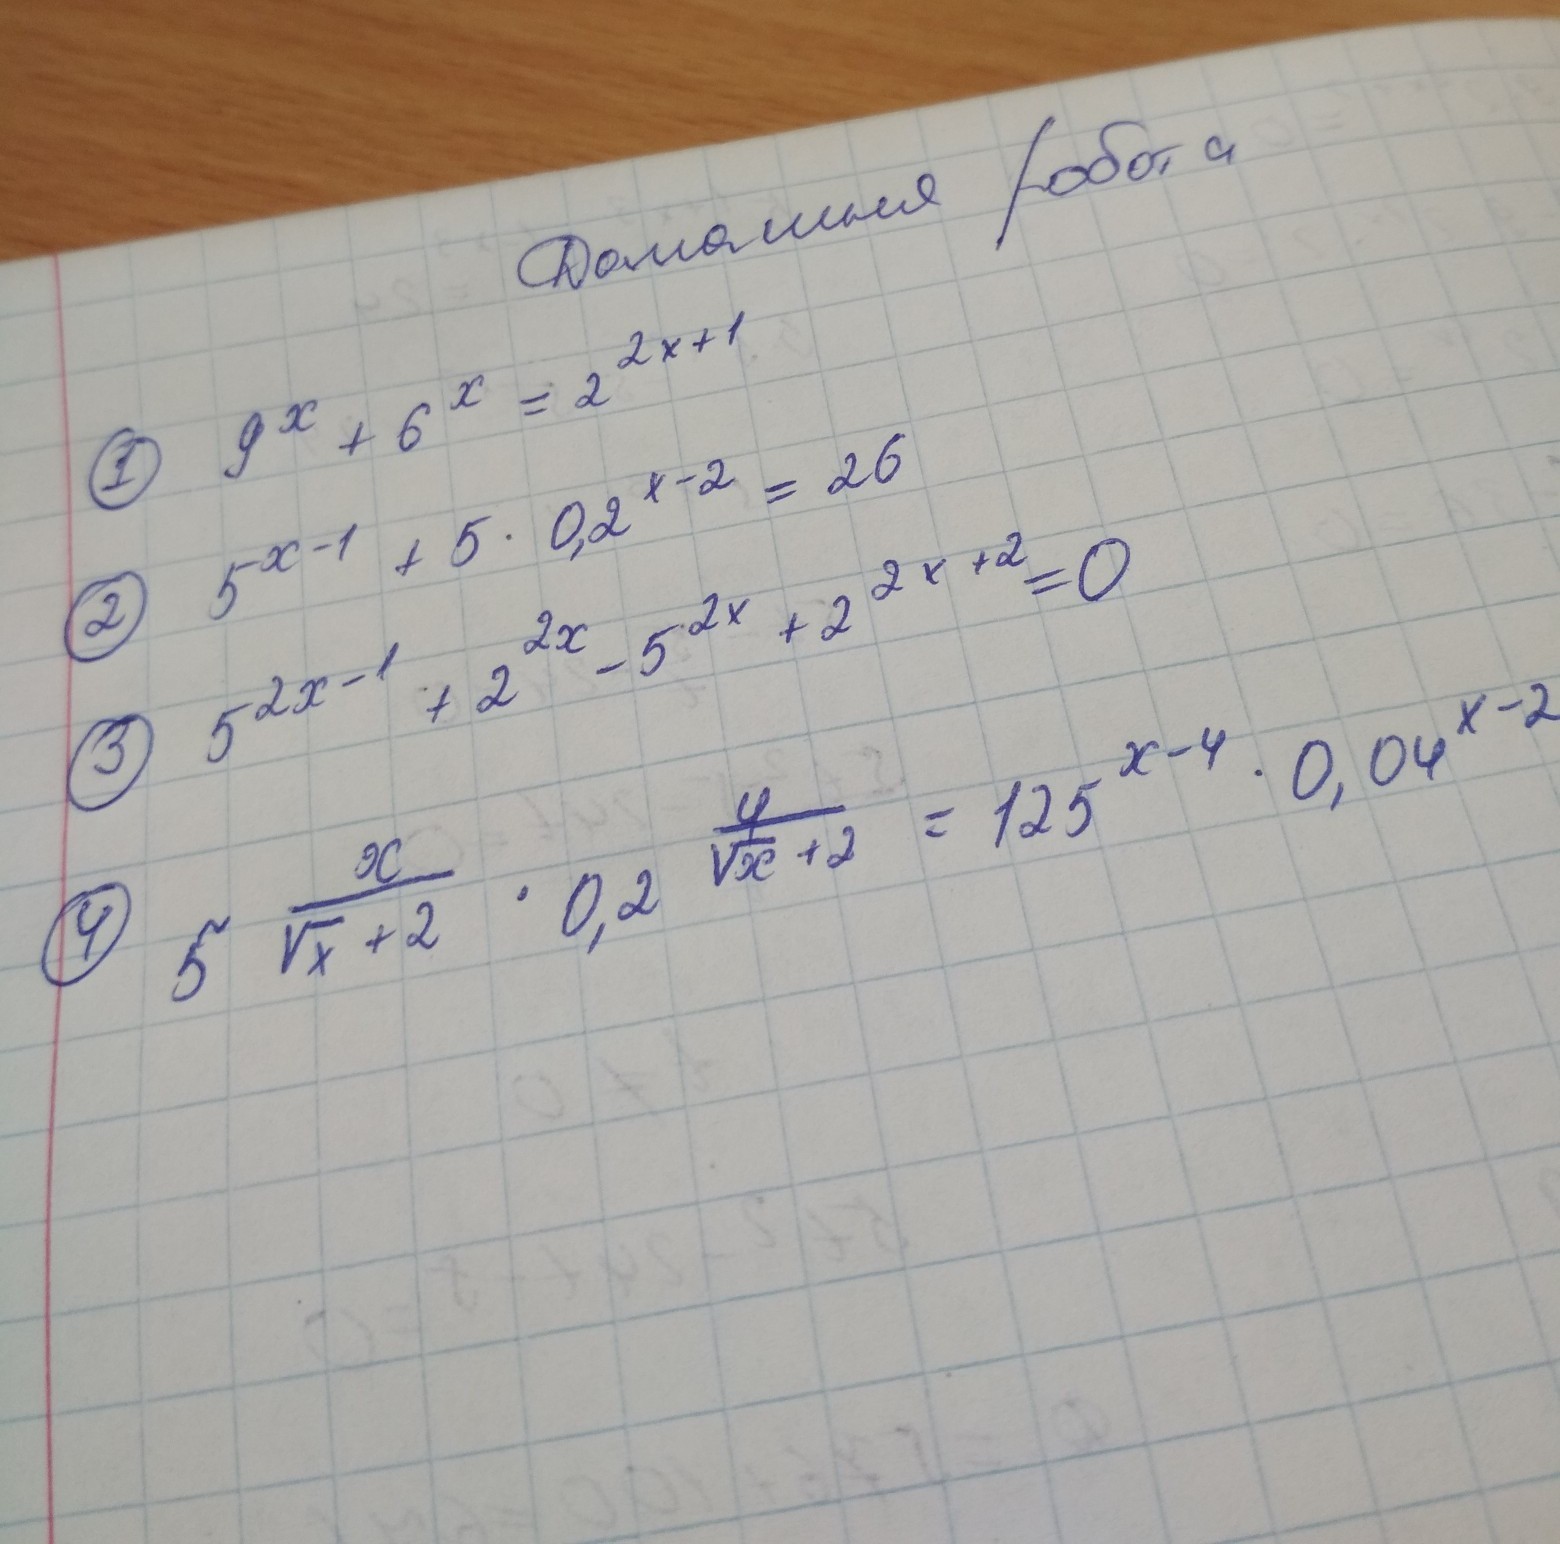 Домашня робота
① 9^x + 6^x = 2^(2x+1)
② 5^(x-1) + 5 · 0,2^(x-2) = 26
③ 5^(2x-1) + 2^(2x) - 5^(2x) + 2^(2x+2) = 0
④ 5^(x/(√x+2)) · 0,2^(4/(√x+2)) = 125^(x-4) · 0,04^(x-2)